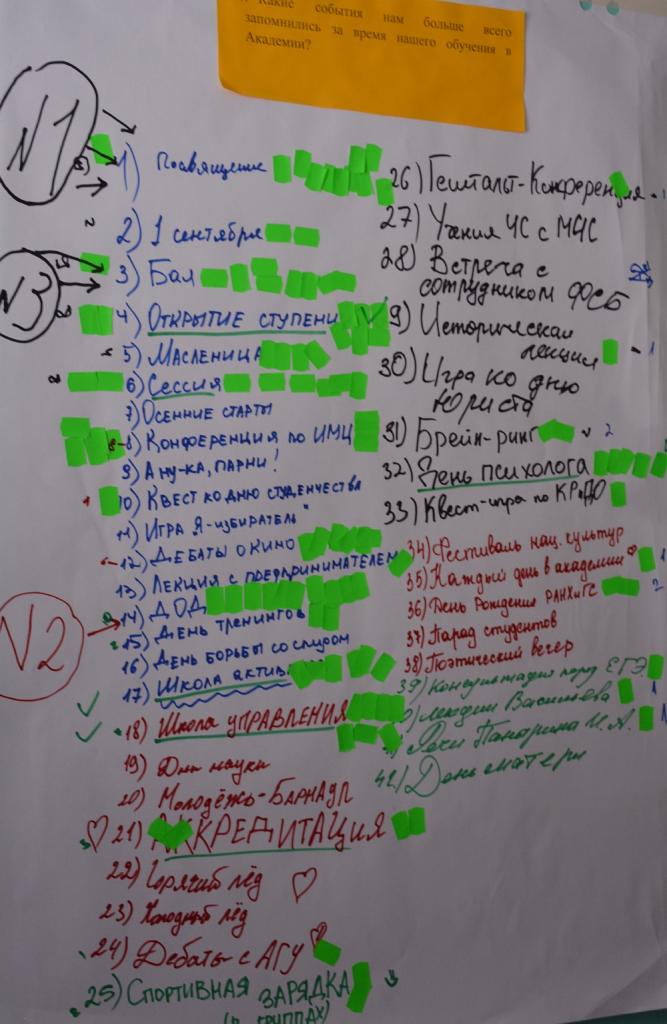 Какие события нам больше всего
запомнились за время нашего обучения в
Академии?
N1
N3
N2
1) Посвящение
2) 1 сентября
3) Бал
4) ОТКРЫТИЕ СТУПЕНИ
5) МАСЛЕНИЦА
6) СЕССИЯ
7) ОСЕННИЕ СТАРТЫ
8) КОНФЕРЕНЦИЯ ПО ИМЦ
9) А НУ-КА, ПАРНИ!
10) КВЕСТ КО ДНЮ СТУДЕНЧЕСТВА
11) ИГРА "Я-ИЗБИРАТЕЛЬ"
12) ДЕБАТЫ О КИНО
13) ЛЕКЦИЯ С ПРЕДПРИНИМАТЕЛЕМ
14) ДОД
15) ДЕНЬ ТРЕНИНГОВ
16) ДЕНЬ БОРЬБЫ СО СПИДОМ
17) ШКОЛА АКТИВ
18) ШКОЛА УПРАВЛЕНИЯ
19) Дни науки
20) Молодёжь-БАРНАУЛ
21) АККРЕДИТАЦИЯ
22) Горячий лёд
23) Холодный лёд
24) Дебаты с АГУ
25) СПОРТИВНАЯ ЗАРЯДКА
ГРУППАХ)
26) Гештальт-Конференция
27) Учения ЧС с МЧС
28) Встреча с
сотрудником ФСБ
9) Историческая
лекция
30) Игра ко дню
Юриста
31) Брейн-ринг 2
32) День психолога
33) Квест-игра по КРиДО
34) Фестиваль нац. культур
35) Каждый день в академии 1
36) День Рождения РАНХиГС 2
37) Парад студентов
38) Поэтический вечер
39) Консультация перед ЕГЭ
0) Лекции Васильева 1
Речи Панарина И.А. 1
42) День матери